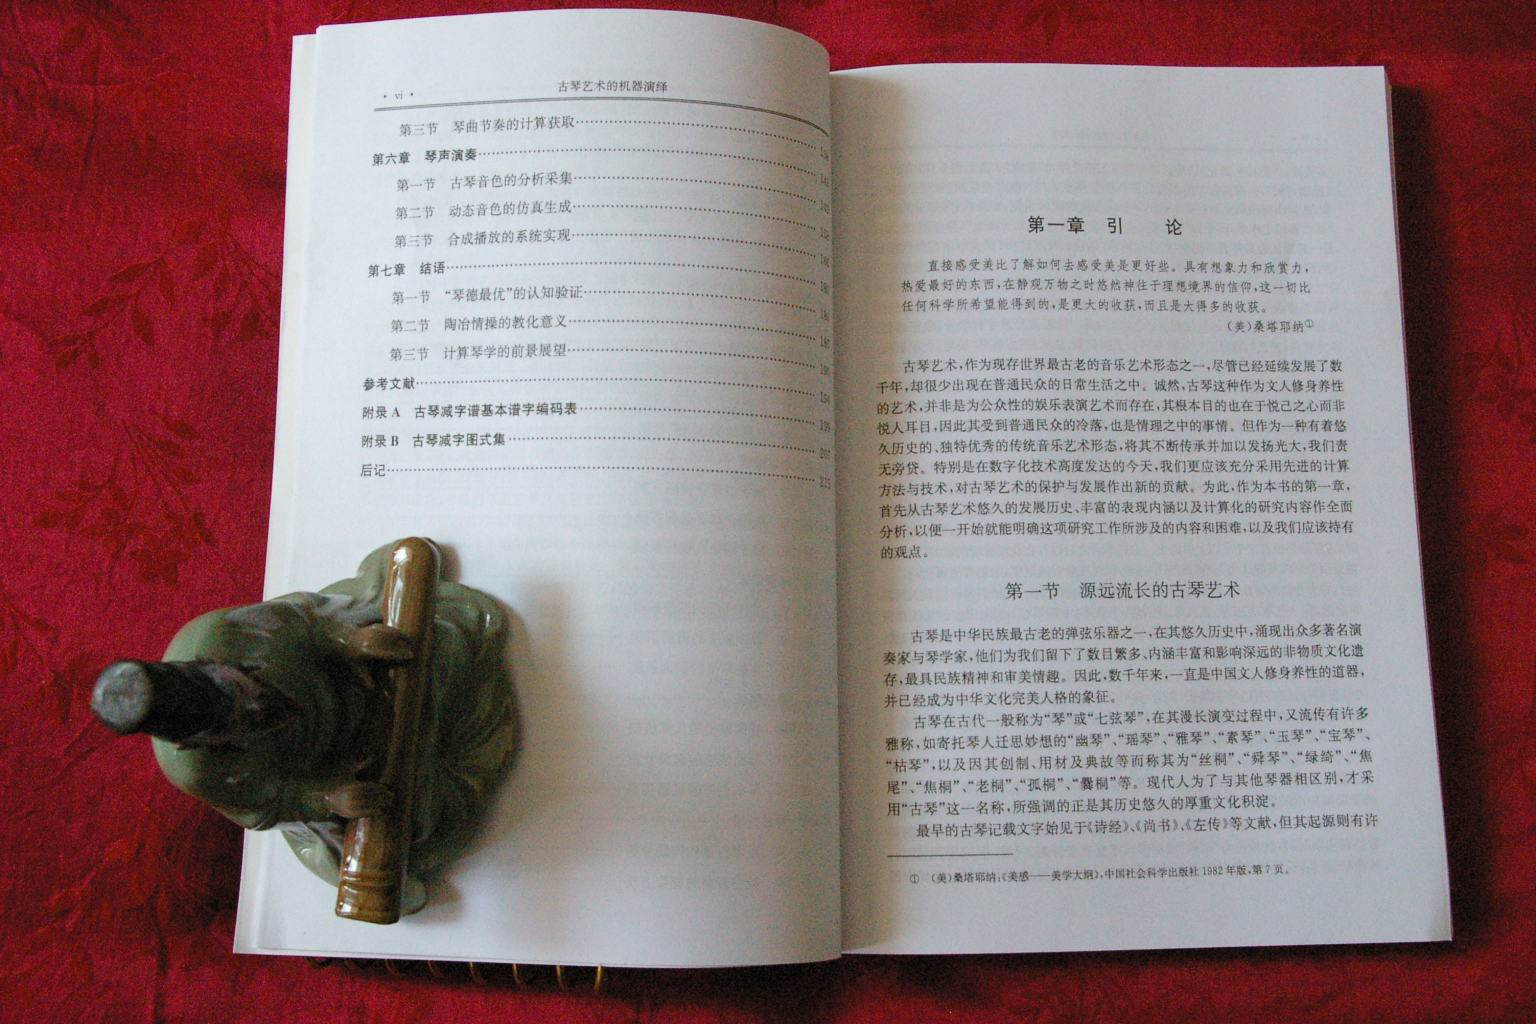 • vi •
古琴艺术的机器演绎
第三节 琴曲节奏的计算获取
第六章 琴声演奏
第一节 古琴音色的分析采集
第二节 动态音色的仿真生成
第三节 合成播放的系统实现
第七章 结语
第一节 “琴德最优”的认知验证
第二节 陶冶情操的教化意义
第三节 计算琴学的前景展望
参考文献
附录 A 古琴减字谱基本谱字编码表
附录 B 古琴减字图式集
后记
第一章 引 论
直接感受美比了解如何去感受美是更好些。具有想象力和欣赏力,
热爱最好的东西,在静观万物之时悠然神往于理想境界的信仰,这一切比
任何科学所希望能得到的,是更大的收获,而且是大得多的收获。
(美)桑塔耶纳①
古琴艺术,作为现存世界最古老的音乐艺术形态之一,尽管已经延续发展了数
千年,却很少出现在普通民众的日常生活之中。诚然,古琴这种作为文人修身养性
的艺术,并非是为公众性的娱乐表演艺术而存在,其根本目的也在于悦己之心而非
悦人耳目,因此其受到普通民众的冷落,也是情理之中的事情。但作为一种有着悠
久历史的、独特优秀的传统音乐艺术形态,将其不断传承并加以发扬光大,我们责
无旁贷。特别是在数字化技术高度发达的今天,我们更应该充分采用先进的计算
方法与技术,对古琴艺术的保护与发展作出新的贡献。为此,作为本书的第一章,
首先从古琴艺术悠久的发展历史、丰富的表现内涵以及计算化的研究内容作全面
分析,以便一开始就能明确这项研究工作所涉及的内容和困难,以及我们应该持有
的观点。
第一节 源远流长的古琴艺术
古琴是中华民族最古老的弹弦乐器之一,在其悠久历史中,涌现出众多著名演
奏家与琴学家,他们为我们留下了数目繁多、内涵丰富和影响深远的非物质文化遗
存,最具民族精神和审美情趣。因此,数千年来,一直是中国文人修身养性的道器,
并已经成为中华文化完美人格的象征。
古琴在古代一般称为“琴”或“七弦琴”,在其漫长演变过程中,又流传有许多
雅称,如寄托琴人迁思妙想的“幽琴”、“瑶琴”、“雅琴”、“素琴”、“玉琴”、“宝琴”、
“枯琴”,以及因其创制、用材及典故等而称其为“丝桐”、“舜琴”、“绿绮”、“焦
尾”、“焦桐”、“老桐”、“孤桐”、“爨桐”等。现代人为了与其他琴器相区别,才采
用“古琴”这一名称,所强调的正是其历史悠久的厚重文化积淀。
最早的古琴记载文字始见于《诗经》、《尚书》、《左传》等文献,但其起源则有许
① (美)桑塔耶纳:《美感——美学大纲》,中国社会科学出版社 1982 年版,第 7 页。